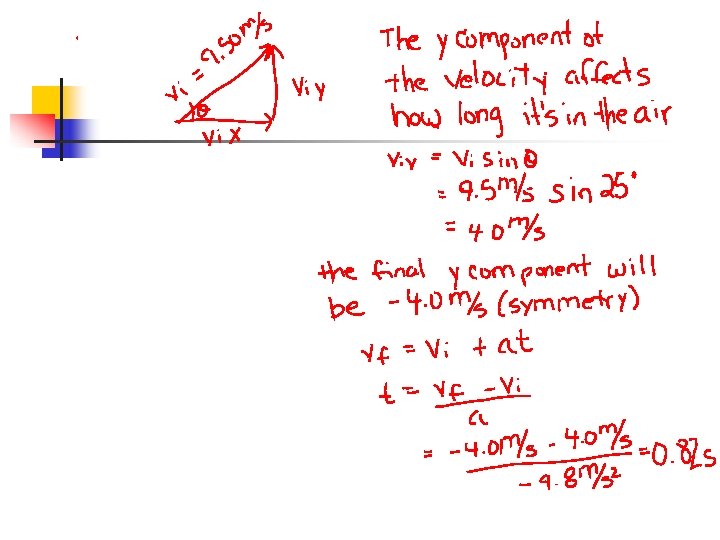 vi = 9.50 m/s
θ
viy
vix
The y component of
the velocity affects
how long it's in the air
viy = vi sin θ
= 9.5 m/s sin 25°
= 4.0 m/s
the final y component will
be -4.0 m/s (symmetry)
vf = vi + at
t = vf - vi
a
= -4.0 m/s - 4.0 m/s = 0.82 s
-9.8 m/s²